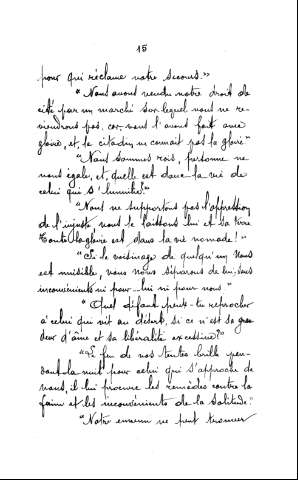 15
pour qui réclame notre secours."
"Nous avons vendu notre droit de
cité par un marché sur lequel nous ne re-
viendrons pas, car, nous l'avons fait avec
gloire, et, le citadin ne connait pas la gloire"
"Nous sommes rois, personne ne
nous égale, et, quelle est donc la vie de
celui qui s'humilie?"
"Nous ne supportons pas l'oppression
de l'injuste, nous le laissons lui et sa terre
Toute la gloire est dans la vie nomade!"
"Si le voisinage de quelqu'un nous
est nuisible, nous nous séparons de lui, sans
inconvénients ni pour lui ni pour nous"
"Quel défaut peux-tu reprocher
à celui qui vit au désert, si ce n'est sa gran
deur d'âme et sa libéralité excessive?"
"Le feu de nos tentes brille pen-
dant la nuit pour celui qui s'approche de
nous, il lui procure les remèdes contre la
faim et les inconvénients de la solitude."
"Notre ennemi ne peut trouver